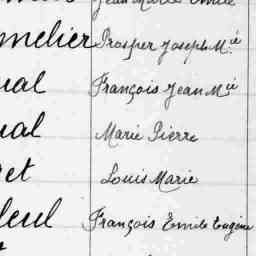 Jean Marie Emile
melier Prosper Joseph M.ie
ual François Jean M.ie
ual Marie Pierre
et Louis Marie
leul François Emile Eugène